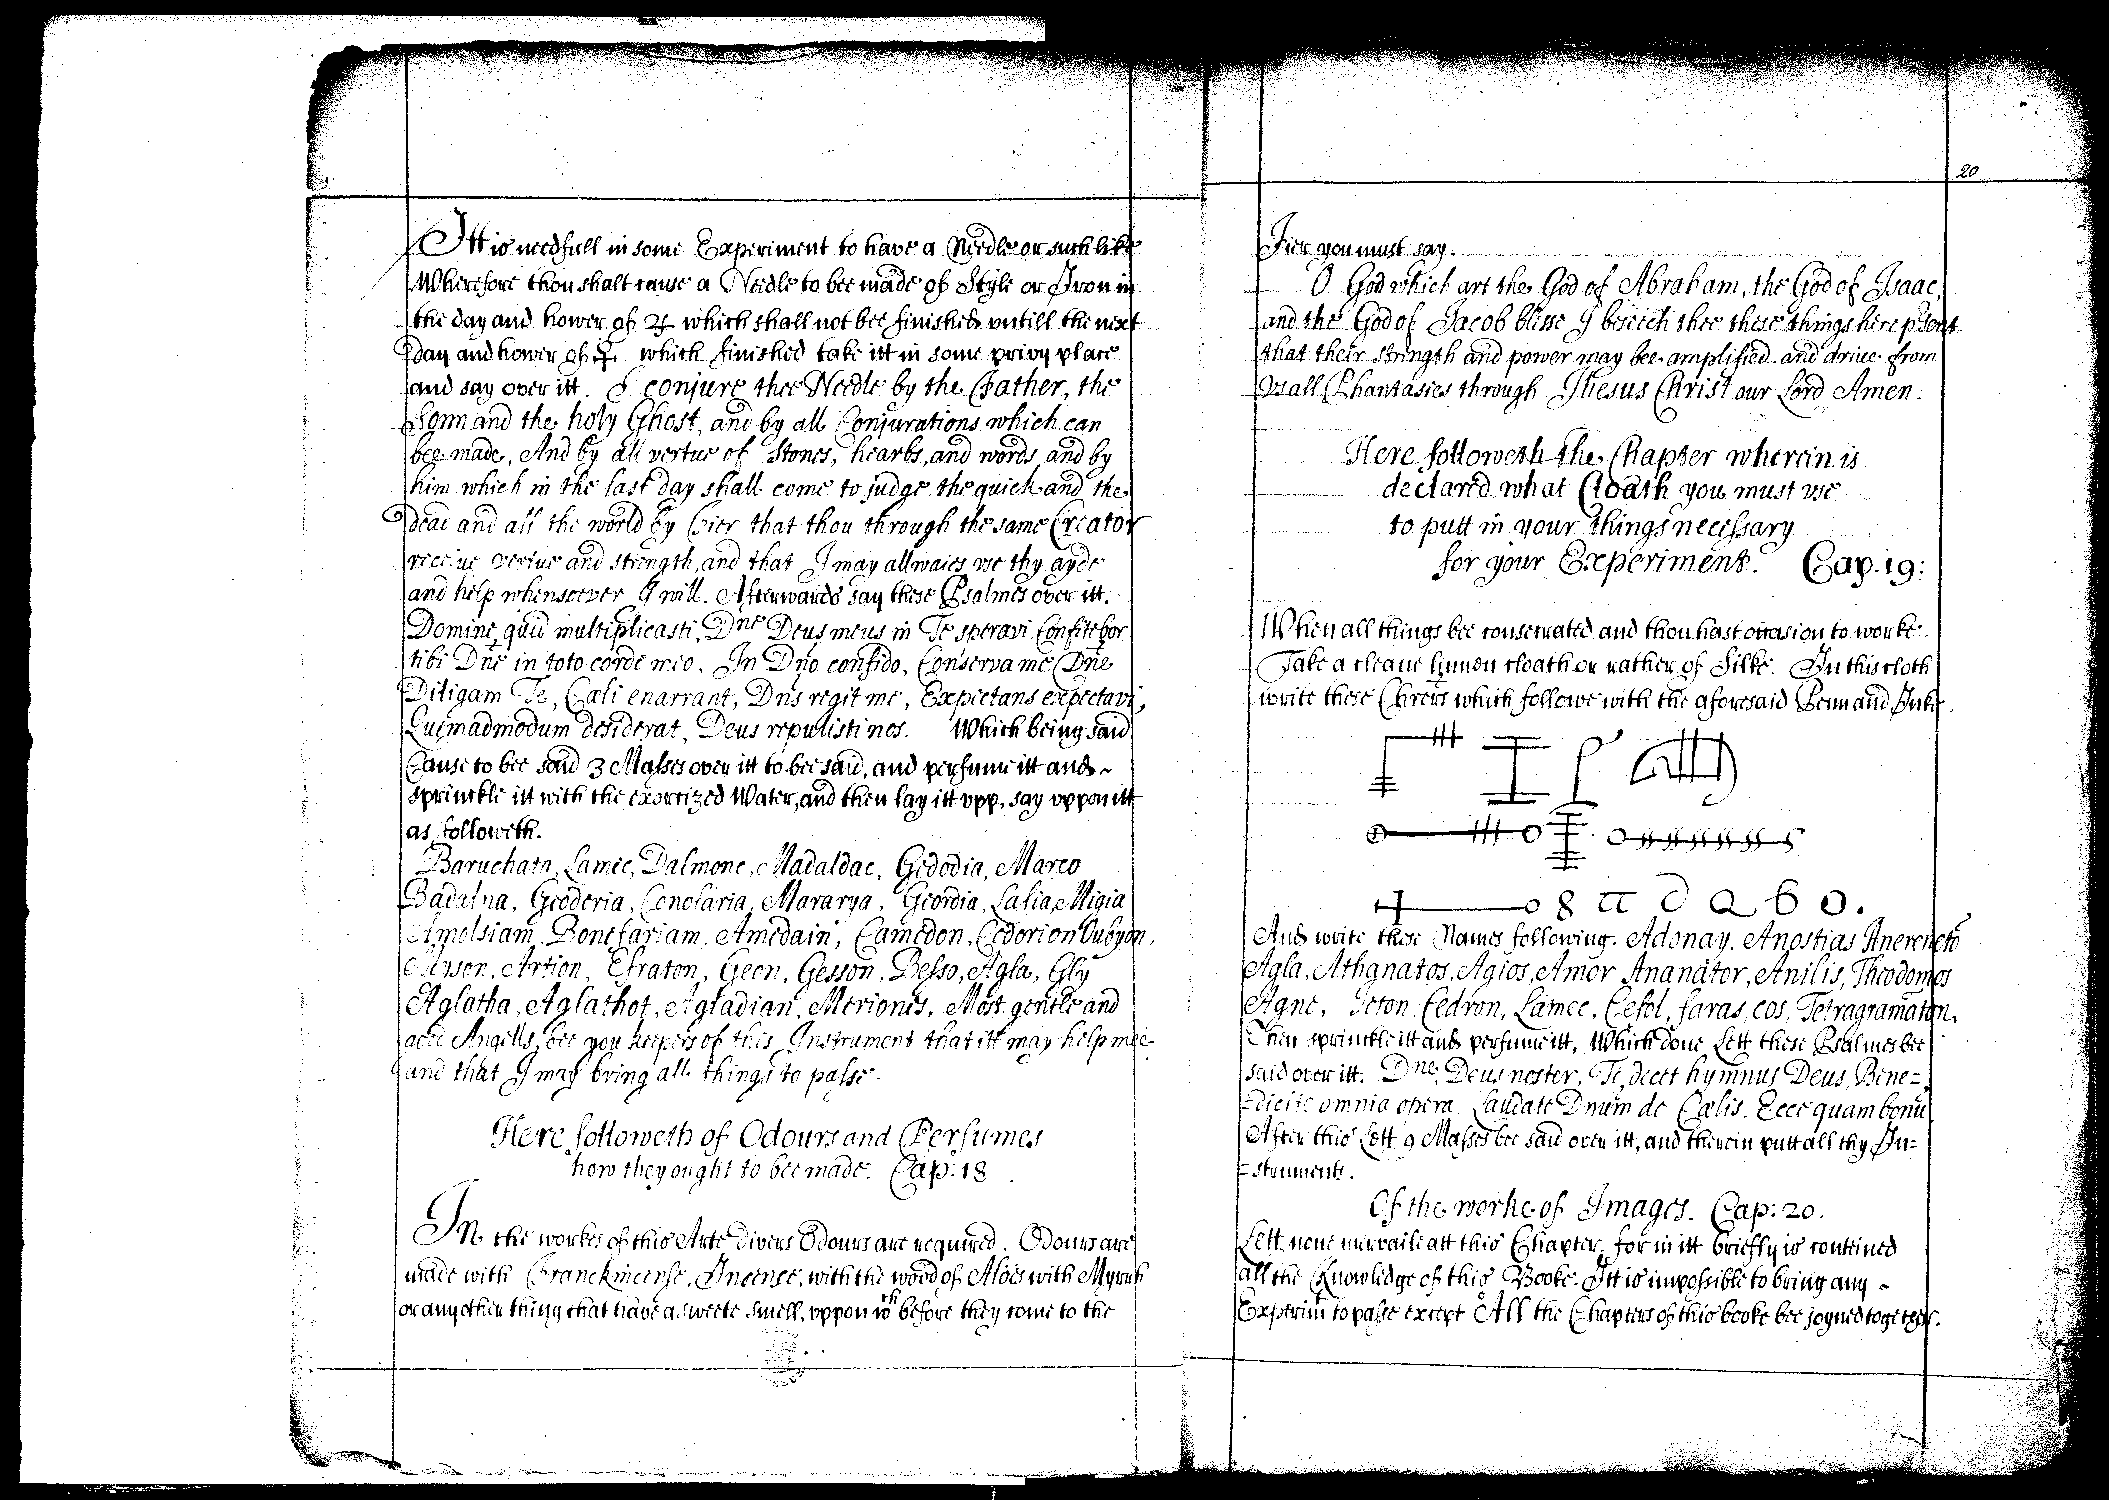 Itt is needfull in some Experiment to have a Needle or such like
Wherefore thou shalt cause a Needle to bee made of Style or Iron in
the day and hower of ♃ which shall not bee finished untill the next
day and hower of ♀ which finished take itt in some privy place
and say over itt. I conjure thee Needle by the Father, the
Sonn and the holy Ghost, and by all Conjurations which can
bee made, And by all vertue of Stones, hearbs, and words and by
him which in the last day shall come to judge the quick and the
dead and all the world by Fier that thou through the same Creator
receive vertue and strength, and that I may allwaies use thy ayde
and help whensoever I will. Afterwards say these Psalmes over itt.
Domine quid multiplicasti, Dne Deus meus in Te speravi Confitebor
tibi Dne in toto corde meo. In Dno confido, Conserva me Dne
Diligam Te, Cæli enarrant, Dns regit me, Expectans expectavi,
Quemadmodum desiderat, Deus repulisti nos. Which being said
Cause to bee said 3 Masses over itt to bee said, and perfume itt and
sprinkle itt with the exorcized Water, and then lay itt upp, say uppon itt
as followeth.
Baruchata, Lamec, Dalmone, Madaldac, Gedodia, Marco
Badalna, Geoderia, Conolaria, Mararya, Geordia, Lalia, Migia
Amolsiam, Bonefariam, Amedain, Camedon, Cedorion Oubyon,
Myson, Artion, Efraton, Geon, Gesson, Besso, Agla, Gly
Aglatha, Aglathot, Agladian, Meriones, Most gentle and
Angells, bee you keepers of this Instrument that itt may help mee
and that I may bring all things to passe.
Here followeth of Odours and Perfumes
how they ought to bee made. Cap: 18
In the workes of this Arte divers Odours are required. Odours are
made with Franckincense, Incense, with the wood of Aloes with Myrrh
or any other thing that have a sweete smell, uppon wch before they come to the
20
Fier you must say.
O God which art the God of Abraham, the God of Isaac,
and the God of Jacob blisse I beseech thee these things here psent
that their strength and power may bee amplified and drive from
us all Phantasies through Jhesus Christ our Lord Amen.
Here followeth the Chapter wherein is
declared what Cloath you must use
to putt in your things necessary
for your Experiment. Cap. 19:
When all things bee consecrated and thou hast occasion to worke
Take a cleane lynnen cloath or rather of Silke. In this cloth
write these Chrers which followe with the aforesaid Penn and Inke
And write these Names following. Adonay, Anostias Anereneto
Agla, Athgnatos, Agios, Amor Ananator, Anilis, Theodomos
Agne, Jeton, Cedron, Lamec, Cefol, faras, cos, Tetragramaton.
Then sprinkle itt and perfume itt, Which done Lett these Psalmes bee
said over itt. Dne Deus noster, Te decet hymnus Deus, Bene=
=dicite omnia opera Laudate Dnum de Cælis. Ecce quam bonu
After this Lett 9 Masses bee said over itt, and therein putt all thy In=
=struments.
Of the worke of Images. Cap: 20.
Lett none mervaile att this Chapter, for in itt briefly is conteined
all the Knowledge of this Booke. Itt is impossible to bring any
Experimt to passe except All the Chapters of this booke bee joyned together.